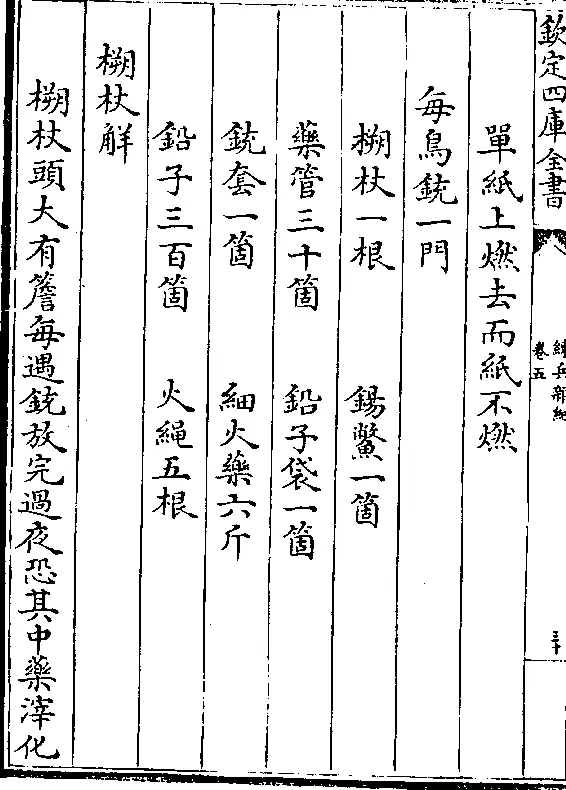 欽定四庫全書
練兵部紀
卷五
三十
單紙上燃去而紙不燃
每鳥銃一門
搠杖一根 錫鱉一箇
藥管三十箇 鉛子袋一箇
銃套一箇 細火藥六斤
鉛子三百箇 火繩五根
搠杖觧
搠杖頭大有簷每遇銃放完過夜恐其中藥滓化